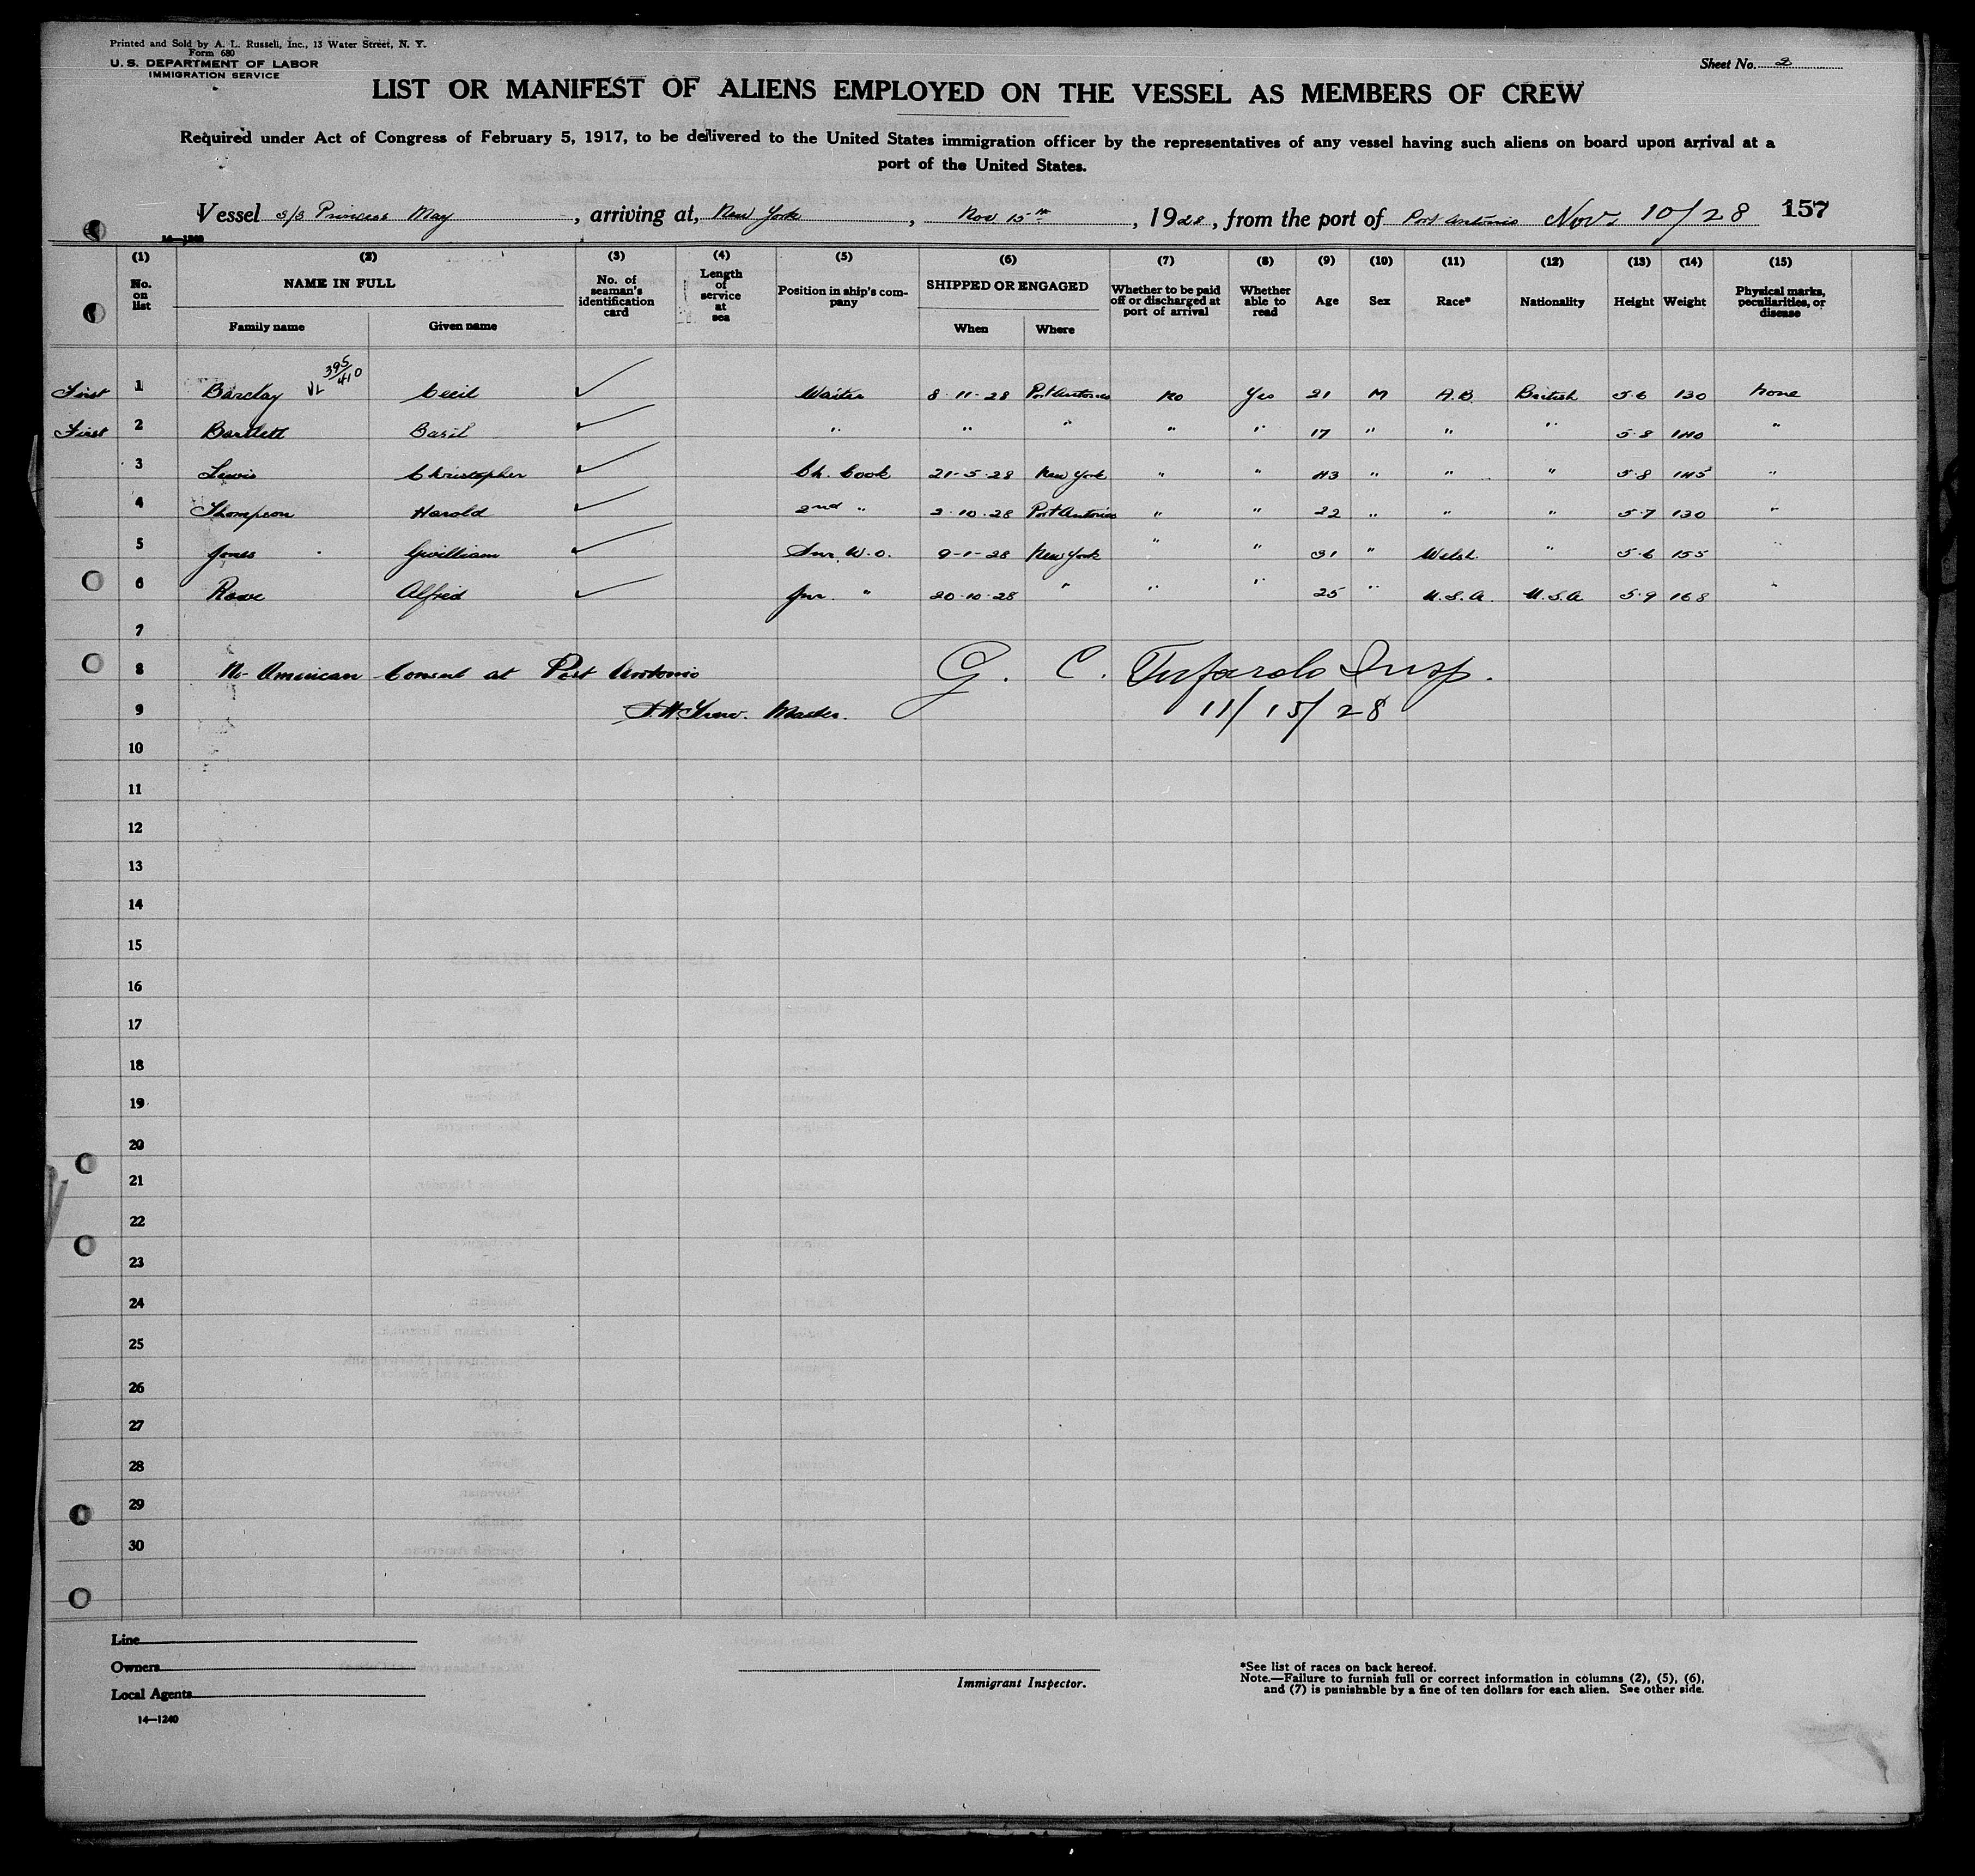 Printed and Sold by A. L. Russell, Inc., 13 Water Street, N. Y.
Form 680
U. S. DEPARTMENT OF LABOR
IMMIGRATION SERVICE
Sheet No. 2
LIST OR MANIFEST OF ALIENS EMPLOYED ON THE VESSEL AS MEMBERS OF CREW
Required under Act of Congress of February 5, 1917, to be delivered to the United States immigration officer by the representatives of any vessel having such aliens on board upon arrival at a
port of the United States.
Vessel S/S Princess May, arriving at, New York, Nov 15th, 1928, from the port of Port Antonio Nov. 10/28 157
14—1240
(1) (2) (3) (4) (5) (6) (7) (8) (9) (10) (11) (12) (13) (14) (15)
No. on list NAME IN FULL Family name Given name No. of seaman's identification card Length of service at sea Position in ship's company SHIPPED OR ENGAGED When Where Whether to be paid off or discharged at port of arrival Whether able to read Age Sex Race* Nationality Height Weight Physical marks, peculiarities, or disease
395/410
First 1 Barclay VL Cecil ✓ Waiter 8-11-28 Port Antonio No Yes 21 M A.B. British 5-6 130 None
First 2 Bartlett Basil ✓ " " " " " 17 " " " 5-8 140 "
3 Lewis Christopher ✓ Ch. Cook 21-5-28 New York " " 43 " " " 5-8 145 "
4 Thompson Harold ✓ 2nd " 2-10-28 Port Antonio " " 22 " " " 5-7 130 "
5 Jones Gwilliam ✓ Snr W.O. 9-1-28 New York " " 31 " Welsh " 5-6 155 "
6 Rowe Alfred ✓ Jnr " 20-10-28 " " " 25 " U.S.A. U.S.A 5-9 168 "
7
8 No American Consul at Port Antonio G. C. Tufarolo Insp.
9 Master. 11/15/28
10
11
12
13
14
15
16
17
18
19
20
21
22
23
24
25
26
27
28
29
30
Line
Owners
Local Agents
14—1240
Immigrant Inspector.
*See list of races on back hereof.
Note.—Failure to furnish full or correct information in columns (2), (5), (6),
and (7) is punishable by a fine of ten dollars for each alien. See other side.